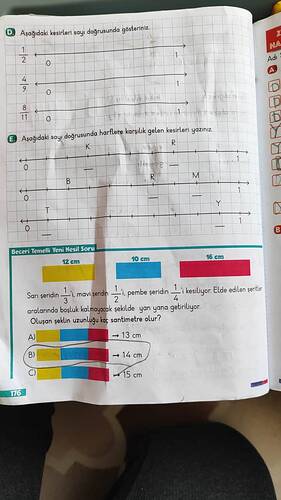 D Aşağıdaki kesirleri sayı doğrusunda gösteriniz.
1/2 0 1
4/9 0 1
8/11 0 1
E Aşağıdaki sayı doğrusunda harflere karşılık gelen kesirleri yazınız.
K R
0 1
B R M
0 1
T Y
0 1
Beceri Temelli Yeni Nesil Soru
12 cm 10 cm 16 cm
Sarı şeridin 1/3 'i, mavi şeridin 1/2 'i, pembe şeridin 1/4 'i kesiliyor. Elde edilen şeritler
aralarında boşluk kalmayacak şekilde yan yana getiriliyor.
Oluşan şeklin uzunluğu kaç santimetre olur?
A) → 13 cm
B) → 14 cm
C) → 15 cm
176
HA
Adı
A
B